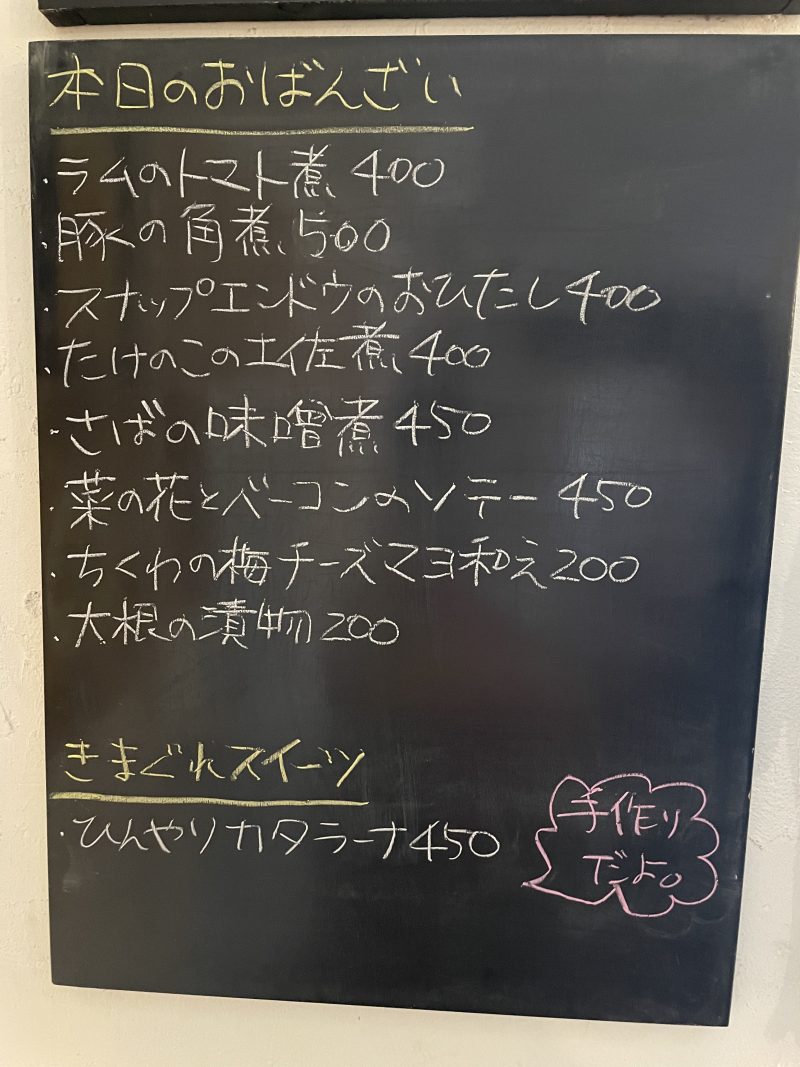 本日のおばんざい
・ラムのトマト煮 400
・豚の角煮 500
・スナップエンドウのおひたし 400
・たけのこの土佐煮 400
・さばの味噌煮 450
・菜の花とベーコンのソテー 450
・ちくわの梅チーズマヨ和え 200
・大根の漬物 200
きまぐれスイーツ
・ひんやりカタラーナ 450
手作り
だよ。